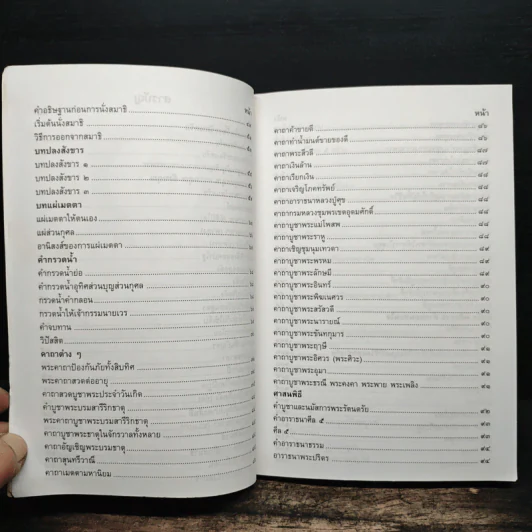 คำอธิษฐานก่อนการนั่งสมาธิ
เริ่มต้นนั่งสมาธิ
วิธีการออกจากสมาธิ
บทปลงสังขาร
บทปลงสังขาร ๑
บทปลงสังขาร ๒
บทปลงสังขาร ๓
บทแผ่เมตตา
แผ่เมตตาให้ตนเอง
แผ่ส่วนกุศล
อานิสงส์ของการแผ่เมตตา
คำกรวดน้ำ
คำกรวดน้ำย่อ
คำกรวดน้ำอุทิศส่วนบุญส่วนกุศล
กรวดน้ำคำกลอน
กรวดน้ำให้เจ้ากรรมนายเวร
คำจบทาน
วิปัสสิต
คาถาต่าง ๆ
พระคาถาป้องกันภัยทั้งสิบทิศ
พระคาถาสวดต่ออายุ
คาถาสวดบูชาพระประจำวันเกิด
คำบูชาพระบรมสารีริกธาตุ
พระคาถาบูชาพระบรมสารีริกธาตุ
คาถาบูชาพระธาตุในจักรวาลทั้งหลาย
คาถาอัญเชิญพระบรมธาตุ
คาถาสุนทรีวาณี
คาถาเมตตามหานิยม
หน้า
คาถาค้าขายดี ๘๖
คาถาทำน้ำมนต์ขายของดี ๘๖
คาถาพระสีวลี ๘๗
คาถาเงินล้าน ๘๘
คาถาเรียกเงิน ๘๘
คาถาเจริญโภคทรัพย์ ๘๘
คาถาอาราธนาหลวงปู่ศุข ๘๘
คาถากรมหลวงชุมพรเขตอุดมศักดิ์ ๘๘
คาถาบูชาพระแม่โพสพ ๘๘
คาถาบูชาพระราหู ๘๘
คาถาเชิญชุมนุมเทวดา ๘๙
คาถาบูชาพระพรหม ๘๙
คาถาบูชาพระลักษมี ๘๙
คาถาบูชาพระอินทร์ ๘๙
คาถาบูชาพระพิฆเนศวร ๙๐
คาถาบูชาพระสรัสวดี ๙๐
คาถาบูชาพระนารายณ์ ๙๐
คาถาบูชาพระขันทกุมาร ๙๐
คาถาบูชาพระฤๅษี ๙๐
คาถาบูชาพระอิศวร (พระศิวะ) ๙๑
คาถาบูชาพระอุมา ๙๑
คาถาบูชาพระธรณี พระคงคา พระพาย พระเพลิง ๙๑
ศาสนพิธี
คำบูชาและนมัสการพระรัตนตรัย ๙๒
คำอาราธนาศีล ๕ ๙๓
ศีล ๕ ๙๓
คำอาราธนาธรรม ๙๔
อาราธนาพระปริตร ๙๔